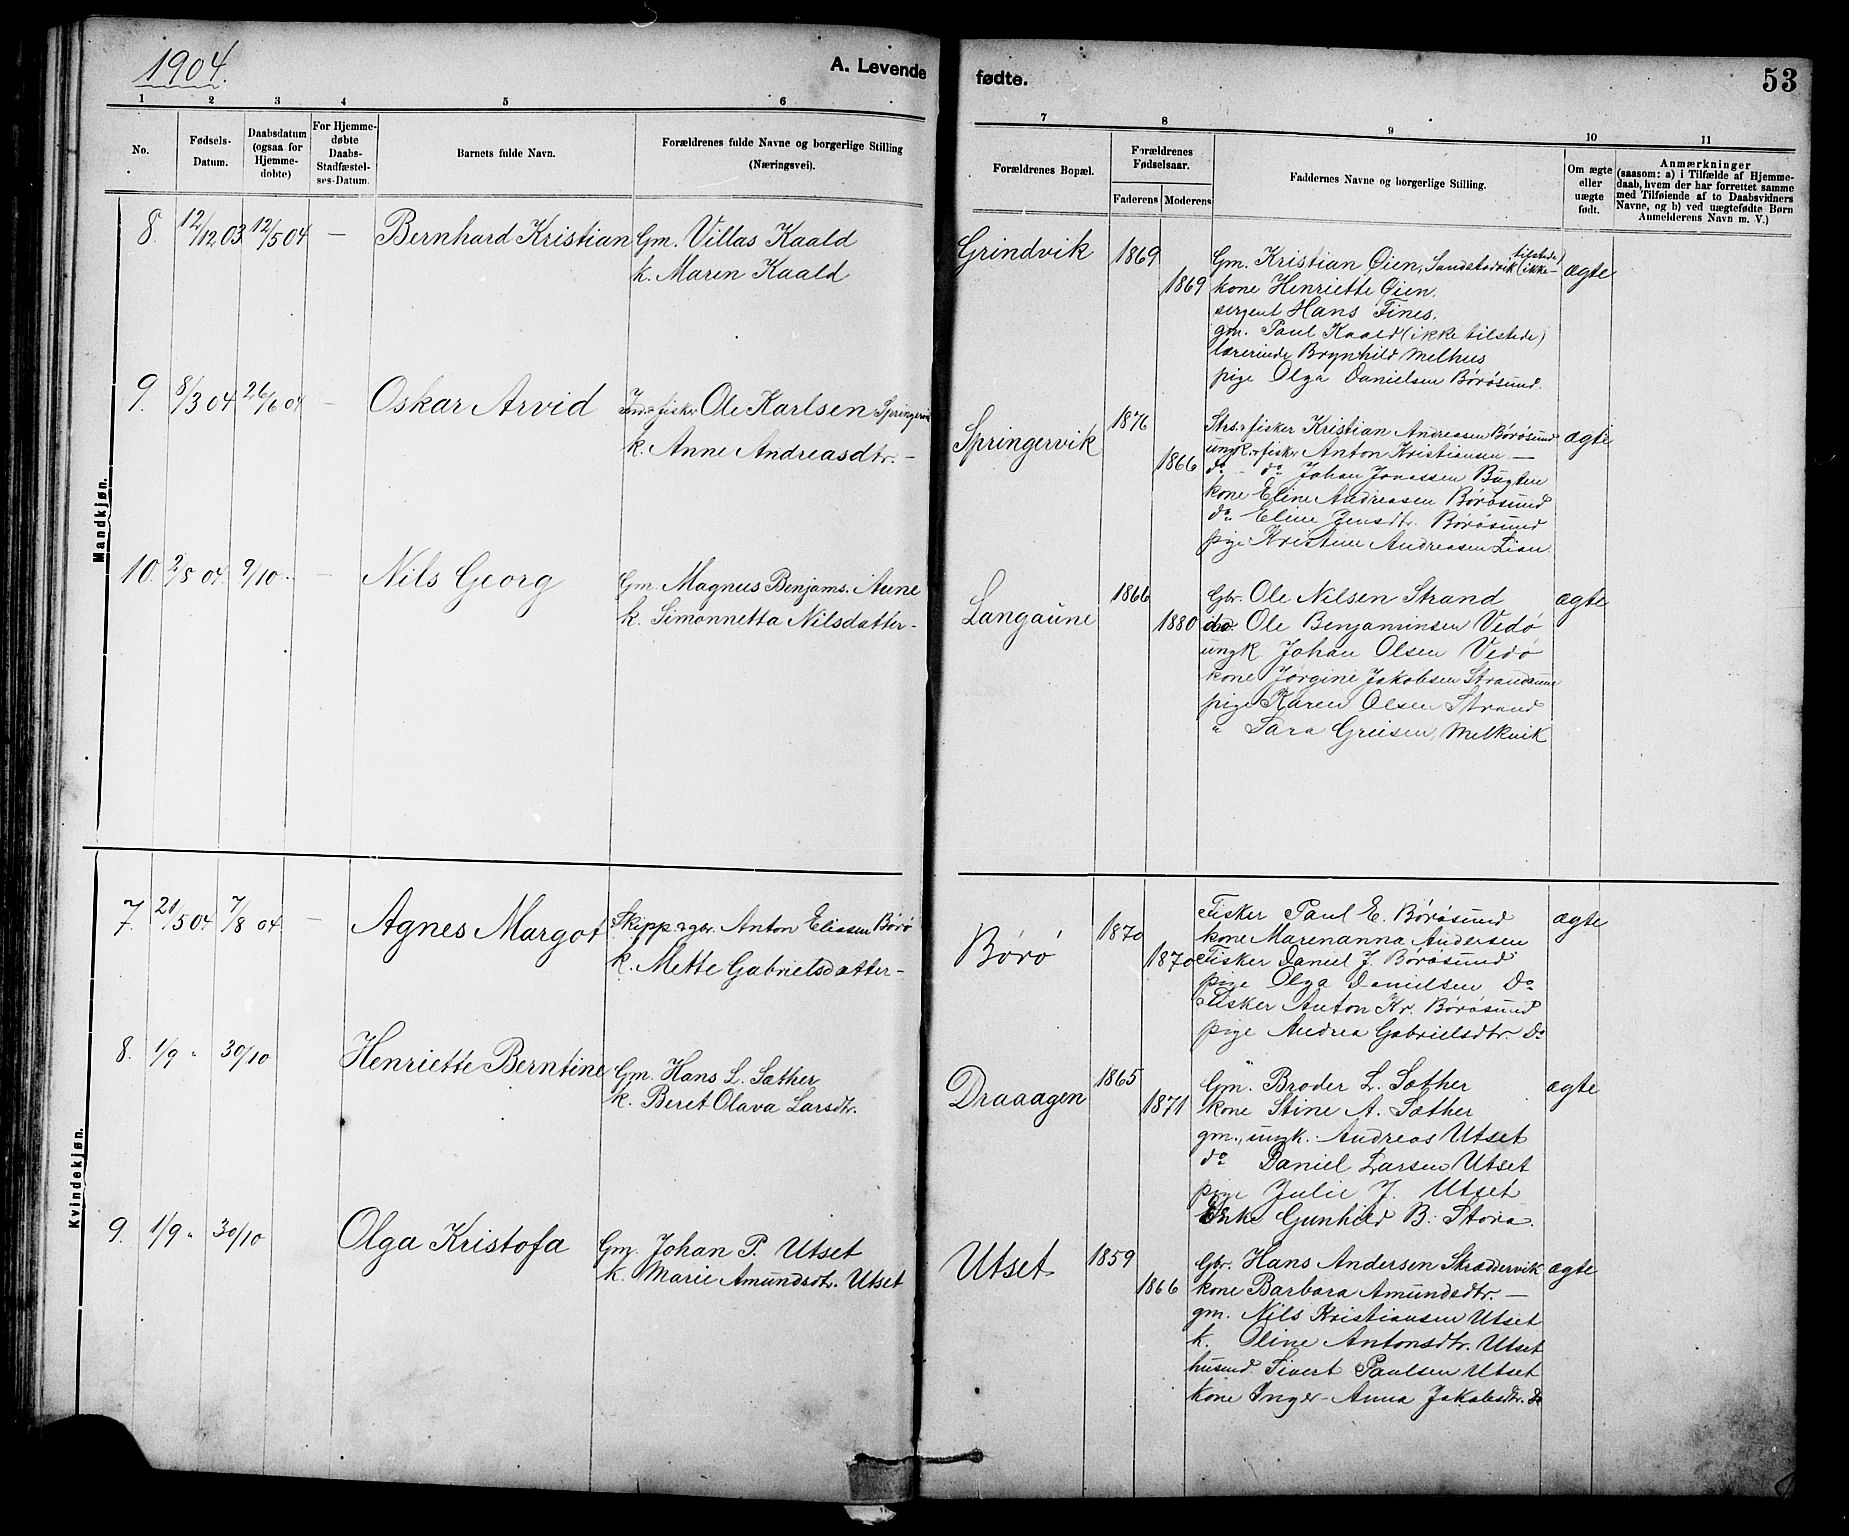 1904.
A. Levende fødte.
53
1 2 3 4 5 6 7 8 9 10 11
No.
Fødsels-Datum.
Daabsdatum (ogsaa for Hjemme-dobte)
For Hjemme-døbte Daabs-Stadfæstel-ses-Datum.
Barnets fulde Navn.
Forældrenes fulde Navne og borgerlige Stilling (Næringsvei).
Forældrenes Bopæl.
Forældrenes Fødselsaar.
Faderens Moderens
Faddernes Navne og borgerlige Stilling.
Om ægte eller uægte født.
Anmærkninger
(saasom: a) i Tilfælde af Hjemme-
daab, hvem der har forrettet samme
med Tilføiende af to Daabsvidners
Navne, og b) ved uægtefødte Børn
Anmelderens Navn m. V.)
Mandkjøn.
8. 12/12 03 12/5 04 — Bernhard Kristian
Gm. Villas Kaald
k. Maren Kaald
Grindvik 1869 1869
Gm. Kristian Øien, Sandstadvik (ikke tilstede)
kone Henriette Øien.
sergent Hans Fines.
gm. Paul Kaald (ikke tilstede)
lærerinde Brynhild Melhus
pige Olga Danielsen Børøsund.
ægte
9. 8/3 04 26/6 04 — Oskar Arvid
Ind. fisker Ole Karlsen Springervik
k. Anne Andreasdtr. —
Springervik 1876 1866
Strs. fisker Kristian Andreasen Børøsund
ungk. fisker Anton Kristiansen —
do - do Johan Jonassen Bugten
kone Eline Andreasen Børøsund
do Eline Jensdtr. Børøsund
pige Kristine Andreasen Lian
ægte
10. 2/8 04. 9/10 — Nils Georg
Gm. Magnus Benjams. Aune
k. Simonnetta Nilsdatter -
Langaune 1866 1880
Gbr. Ole Nilsen Strand
do. Ole Benjaminsen Vedø
ungk. Johan Olsen Vedø
kone Jørgine Jakobsen Strandaune
pige Karen Olsen Strand
" Sara Greisen, Melkvik
ægte
Kvindekjøn.
7. 21/5 04 7/8 04 — Agnes Margot
Skipp. & gbr. Anton Eliasen Børø
k. Mette Gabrielsdatter -
Børø 1870 1870
Fisker Paul E. Børøsund
kone Marenanna Andersen
Fisker Daniel J. Børøsund
pige Olga Danielsen Do
Fisker Anton Kr. Børøsund
pige Andrea Gabrielsdtr. Do
ægte
8. 1/9 " 30/10 Henriette Berntine
Gm. Hans L. Sæther
k. Beret Olava Larsdtr.
Draaagen 1865 1871
Gm. Broder L. Sæther
kone Stine A. Sæther
gm., ungk. Andreas Utset
do Daniel Larsen Utset
pige Julie J. Utset
Enke Gunhild B. Stora.
ægte
9. 1/9 " 30/10 Olga Kristofa
Gm. Johan P. Utset
k. Marie Amundsdtr. Utset
Utset 1859 1866
Gbr. Hans Andersen Strøddervik
kone Barbara Amundsdtr. —
gm. Nils Kristiansen Utset
k. Oline Antonsdtr. Utset
husmd. Sivert Paulsen Utset
kone Inger-Anna Jakobsdtr. do
ægte